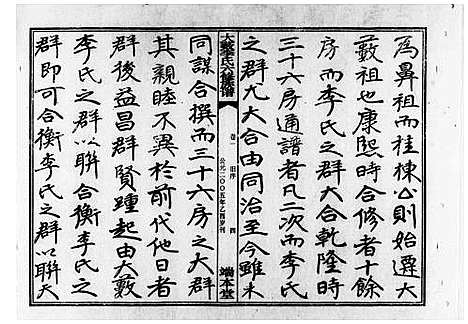 為鼻祖而桂棟公則始遷大
藪祖也康熙時合修者十餘
房而李氏之群大合乾隆時
三十六房通譜者凡二次而李氏
之群尤大合由同治至今雖未
大藪李氏六修族譜
卷一 旧序 四
公元二〇〇五年乙酉岁刊
端本堂
同謀合撰而三十六房之大群
其親睦不異於前代他日者
群後益昌群賢踵起由大藪
李氏之群以聯合衡李氏之
群即可合衡李氏之群以聯天